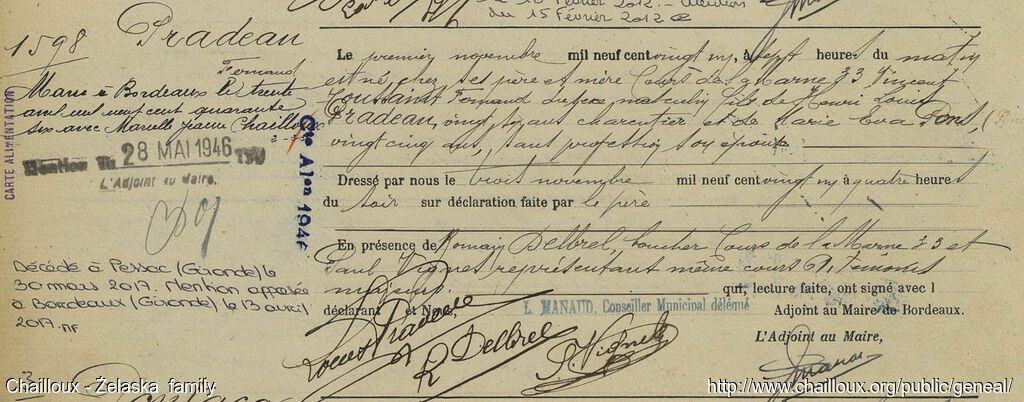 du 15 Février 2012
1598 Pradeau
Fernand
Marié à Bordeaux le trente
avril mil neuf cent quarante
six avec Marcelle Jeanne Chailloux
CARTE ALIMENTATION
Mention du 28 MAI 1946
L'Adjoint au Maire.
Cte Alon 1946
Décédé à Pessac (Gironde) le
30 mars 2017. Mention apposée
à Bordeaux (Gironde) le 13 avril
2017.
Le premier novembre mil neuf cent vingt un, à sept heures du matin
est né, chez ses père et mère Cours de la Marne 33 Vincent
Toussaint Fernand du sexe masculin fils de Henri Louis
Pradeau, vingt ans charpentier et de Marie Eva Pons,
vingt cinq ans, sans profession son épouse
Dressé par nous le trois novembre mil neuf cent vingt un à quatre heures
du soir sur déclaration faite par le père
En présence de Romain Delbrel, boucher Cours de la Marne 33 et
Paul Vignes représentant même cours témoins
majeurs. qui, lecture faite, ont signé avec l
déclarant et Nous, L. MANAUD, Conseiller Municipal délégué Adjoint au Maire de Bordeaux.
L'Adjoint au Maire,
Louis Pradeau
R Delbrel
P. Vignes
Manaud
Chailloux - Żelaska family
http://www.chailloux.org/public/geneal/